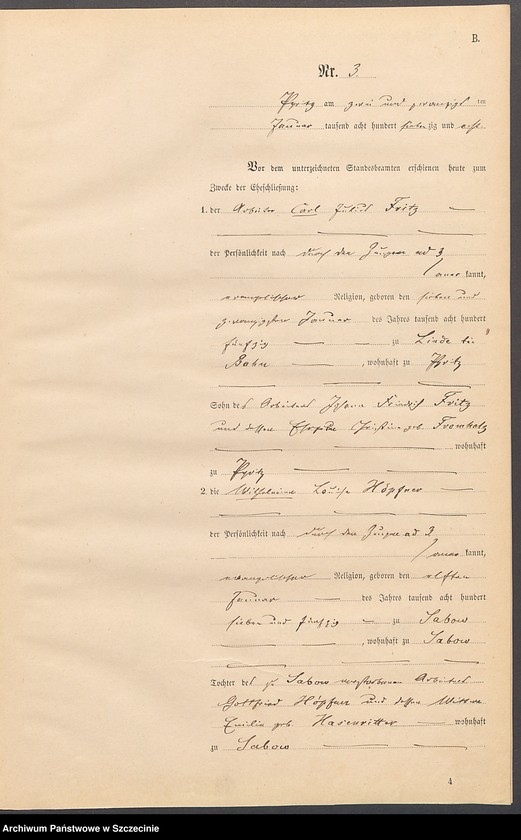 B.
Nr. 3.
Pyritz am zwei und zwanzigsten
Januar tausend acht hundert siebenzig und acht
Vor dem unterzeichneten Standesbeamten erschienen heute zum
Zwecke der Eheschließung:
1. der Arbeiter Carl Julius Fritz
der Persönlichkeit nach durch den Zeugen ad 3
anerkannt,
evangelischer Religion, geboren den sieben und
zwanzigsten Januar des Jahres tausend acht hundert
fünfzig zu Linde bei
Bahn, wohnhaft zu Pyritz
Sohn des Arbeiters Johann Friedrich Fritz
und dessen Ehefrau Christine geb. Fromholz
wohnhaft
zu Pyritz
2. die Wilhelmine Louise Höpfner
der Persönlichkeit nach durch den Zeugen ad 3
anerkannt,
evangelischer Religion, geboren den elften
Januar des Jahres tausend acht hundert
sieben und fünfzig zu Sabow
, wohnhaft zu Sabow
Tochter des zu Sabow verstorbenen Arbeiters
Gottfried Höpfner und dessen Wittwe
Emilie geb. Hasenritter wohnhaft
zu Sabow
4
Archiwum Państwowe w Szczecinie